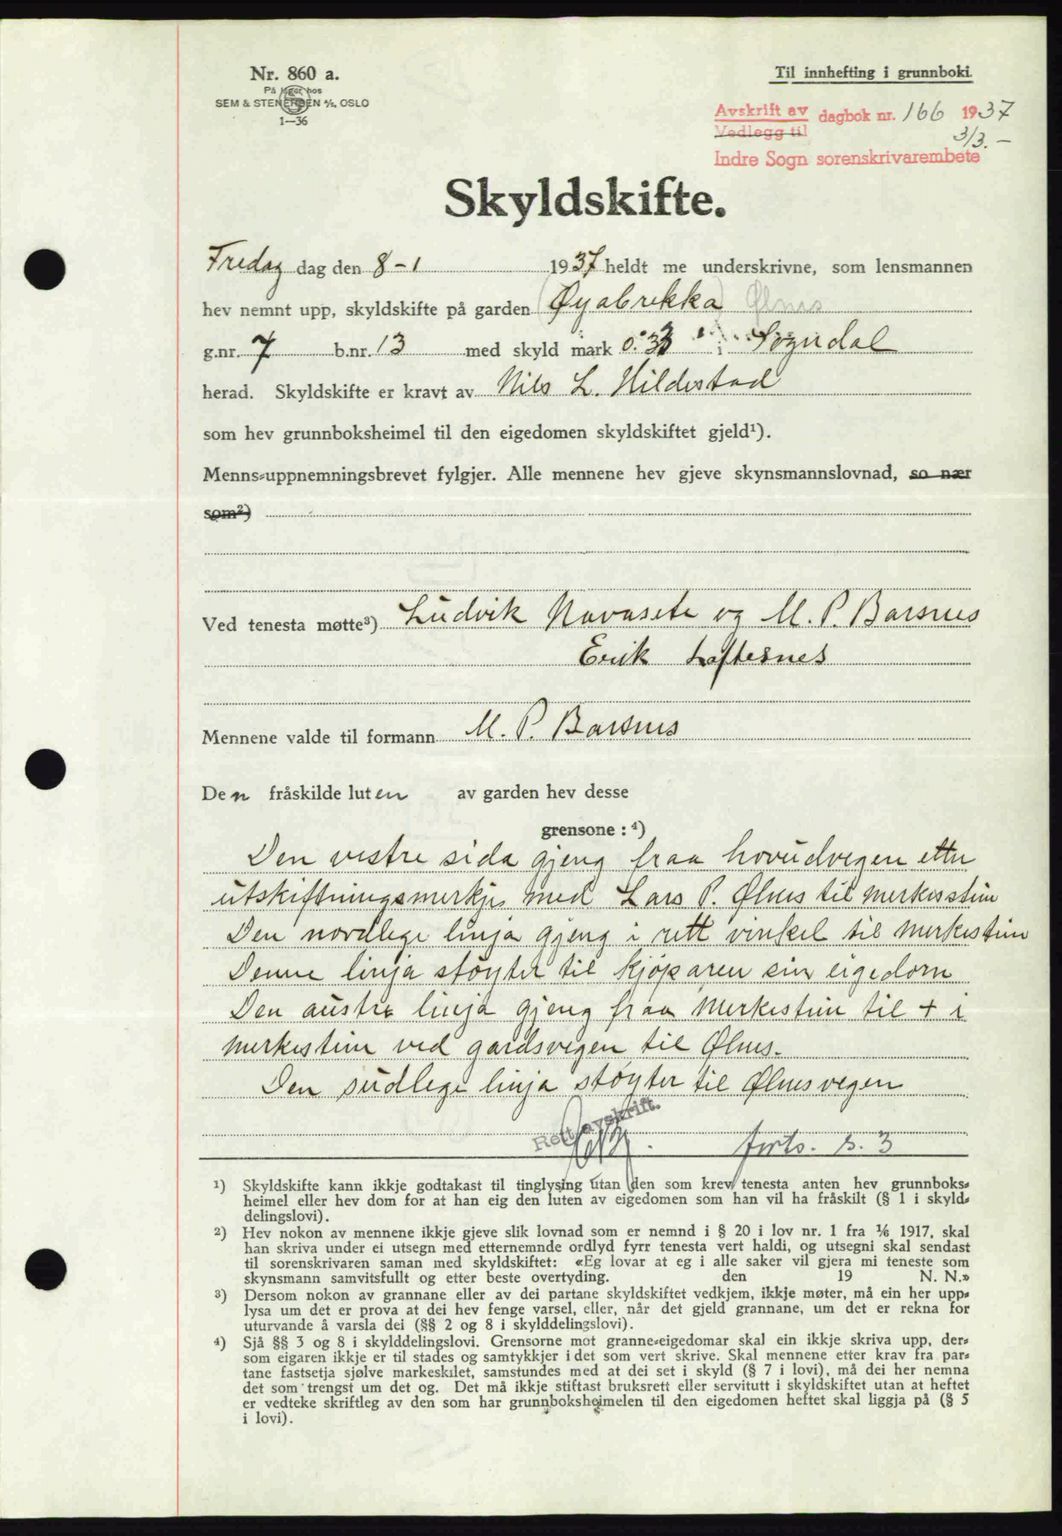 Nr. 860 a.
På lager hos
SEM & STENERSEN A/S, OSLO
1—36
Til innhefting i grunnboki.
Avskrift av dagbok nr. 166 1937
Vedlegg til 3/3. —
Indre Sogn sorenskrivarembete
Skyldskifte.
Fredag dag den 8-1 1937 heldt me underskrivne, som lensmannen
hev nemnt upp, skyldskifte på garden (Øyabrekka) Ølnes
g.nr. 7 b.nr. 13 med skyld mark 0.33 i Sogndal
herad. Skyldskifte er kravt av Nils L. Hildestad
som hev grunnboksheimel til den eigedomen skyldskiftet gjeld¹).
Menns-uppnemningsbrevet fylgjer. Alle mennene hev gjeve skynsmannslovnad, so nær
som²)
Ved tenesta møtte³) Ludvik Navasete og M. P. Barsnes
Erik Loftesnes
Mennene valde til formann M. P. Barsnes
Den fråskilde luten av garden hev desse
grensone : ⁴)
Den vestre sida gjeng fraa hovudvegen etter
utskiftningsmerkje med Lars P. Ølnes til merkesstein
Den nordlege linja gjeng i rett vinkel til merkestein
Denne linja støyter til kjøparen sin eigedom
Den austre linja gjeng fraa merkestein til + i
merkestein ved gardsvegen til Ølnes.
Den sudlege linja støyter til Ølnesvegen
Rett avskrift.
forts. s. 3
¹) Skyldskifte kann ikkje godtakast til tinglysing utan den som krev tenesta anten hev grunnboks-
heimel eller hev dom for at han eig den luten av eigedomen som han vil ha fråskilt (§ 1 i skyld-
delingslovi).
²) Hev nokon av mennene ikkje gjeve slik lovnad som er nemnd i § 20 i lov nr. 1 fra 1/6 1917, skal
han skriva under ei utsegn med etternemnde ordlyd fyrr tenesta vert haldi, og utsegni skal sendast
til sorenskrivaren saman med skyldskiftet: «Eg lovar at eg i alle saker vil gjera mi teneste som
skynsmann samvitsfullt og etter beste overtyding. den 19 N. N.»
³) Dersom nokon av grannane eller av dei partane skyldskiftet vedkjem, ikkje møter, må ein her upp-
lysa um det er prova at dei hev fenge varsel, eller, når det gjeld grannane, um det er rekna for
uturvande å varsla dei (§§ 2 og 8 i skylddelingslovi).
⁴) Sjå §§ 3 og 8 i skylddelingslovi. Grensorne mot granne-eigedomar skal ein ikkje skriva upp, der-
som eigaren ikkje er til stades og samtykkjer i det som vert skrive. Skal mennene etter krav fra par-
tane fastsetja sjølve markeskilet, samstundes med at dei set i skyld (§ 7 i lovi), må dei her nemna
det som trengst um det og. Det må ikkje stiftast bruksrett eller servitutt i skyldskiftet utan at heftet
er vedteke skriftleg av den som har grunnboksheimelen til den eigedomen heftet skal liggja på (§ 5
i lovi).